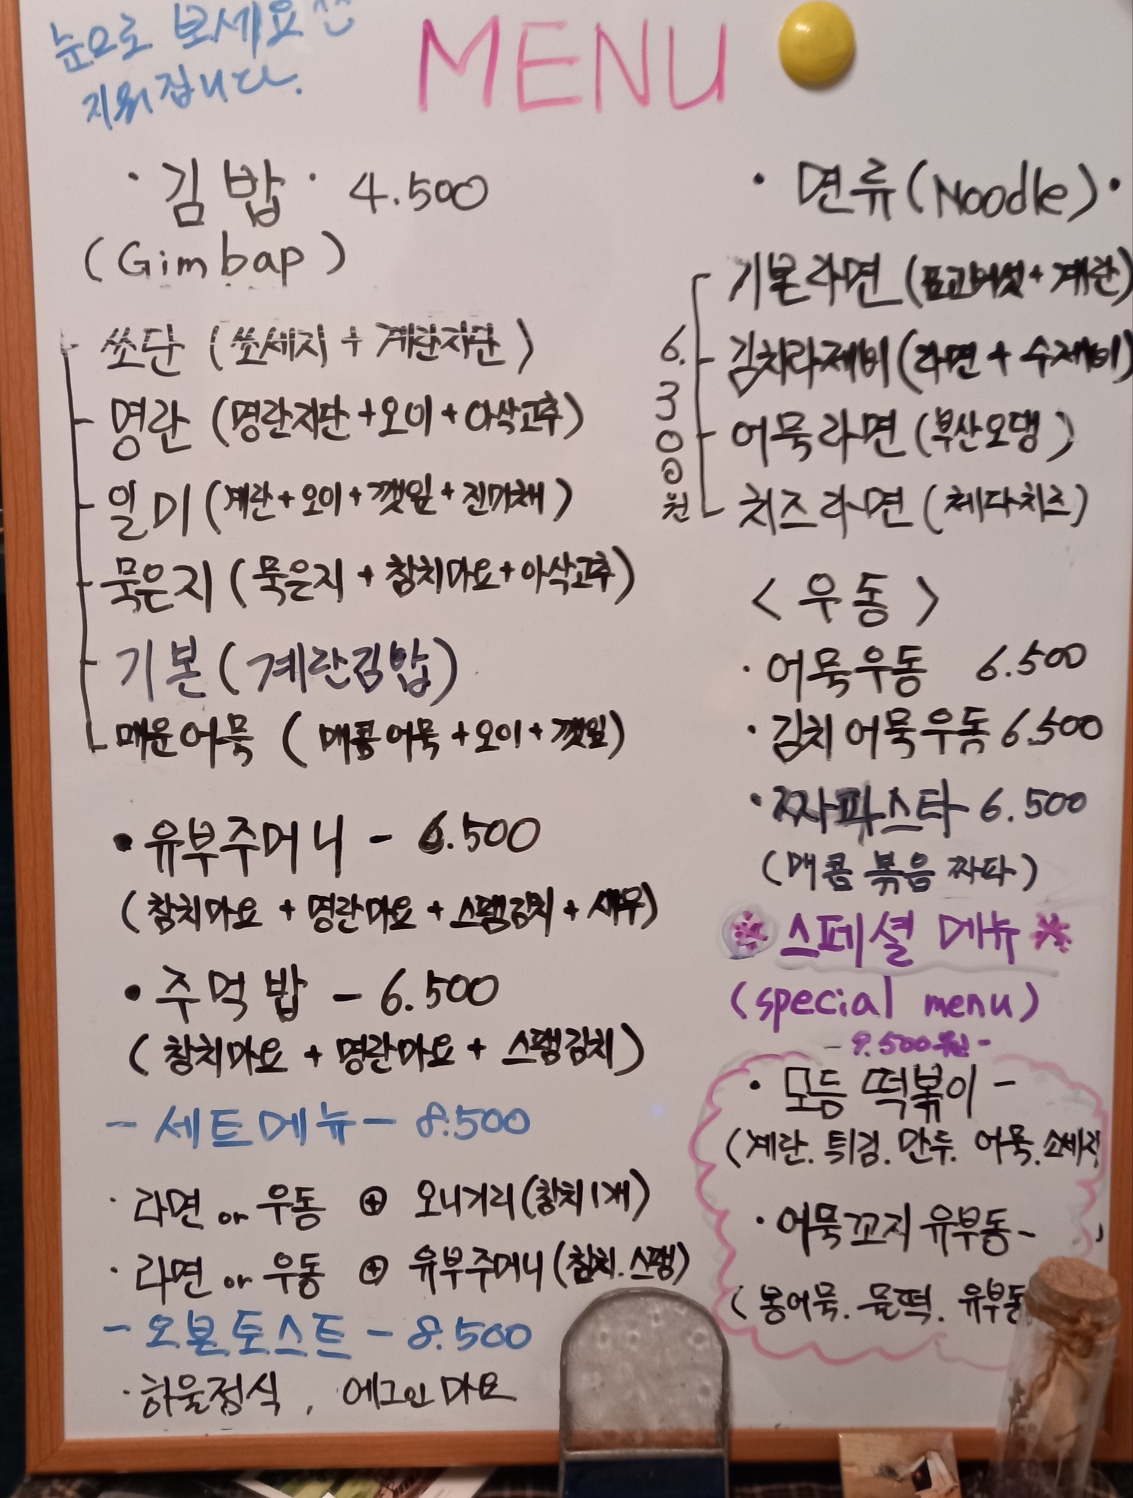 눈으로 보세요 ^^
지워집니다.
MENU
· 김밥 · 4.500
(Gimbap)
쏘단 (쏘세지 + 계란지단)
명란 (명란지단 + 오이 + 아삭고추)
일미 (계란 + 오이 + 깻잎 + 진미채)
묵은지 (묵은지 + 참치마요 + 아삭고추)
기본 (계란김밥)
매운어묵 (매콤어묵 + 오이 + 깻잎)
• 유부주머니 - 6.500
(참치마요 + 명란마요 + 스팸김치 + 새우)
• 주먹밥 - 6.500
(참치마요 + 명란마요 + 스팸김치)
- 세트메뉴 - 8.500
· 라면 or 우동 ⊕ 오니기리 (참치1개)
· 라면 or 우동 ⊕ 유부주머니 (참치.스팸)
- 오븐토스트 - 8.500
· 하울정식, 에그인마요
· 면류 (Noodle) ·
6.300원
기본라면 (표고버섯 + 계란)
김치라제비 (라면 + 수제비)
어묵라면 (부산오뎅)
치즈라면 (체다치즈)
< 우동 >
· 어묵우동 6.500
· 김치어묵우동 6.500
· 짜파스타 6.500
(매콤 볶음 짜파)
스페셜 메뉴
(special menu)
- 9.500원 -
· 모듬 떡볶이 -
(계란. 튀김. 만두. 어묵. 소세지
· 어묵꼬지 유부동 -
(봉어묵. 물떡. 유부동